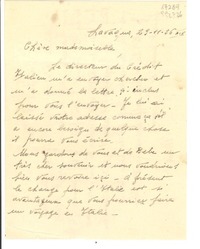 Chère mademoiselle,
Le directeur du Crédit
Italien m'a envoyé chercher et
m'a donné la lettre, ci inclus
pour vous l'envoyer. Je lui ai
laissé votre adresse comme ça
a encore besoin de quelque chose
il pourra vous écrire.
Nous gardons de vous et de Bela un
très cher souvenir et nous voudrions
bien vous revoir ici. à présent
le change pour l'Italie est si
avantageux que vous pourriez faire
un voyage en Italie.